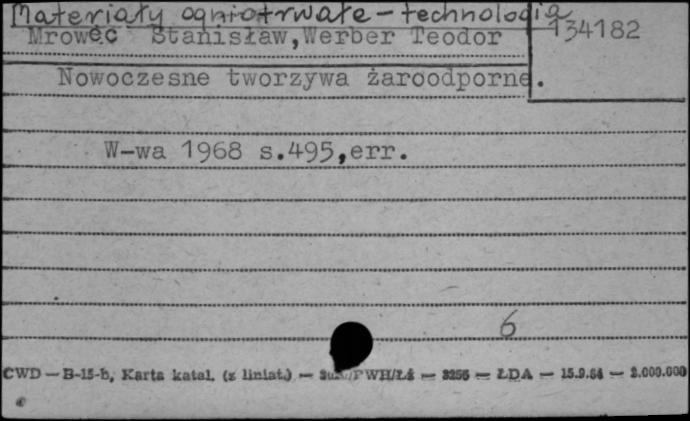 Materiały ogniotrwałe - technologia
Mrowec Stanisław, Werber Teodor
134182
Nowoczesne tworzywa żaroodporne.
W-wa 1968 s.495,err.
6
CWD — B-15-b, Karta katal. (z liniat.) — PWH/Łź — 3256 — ŁDA — 15.9.64 — 2.000.000